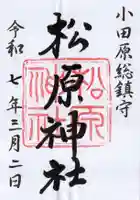 小田原総鎮守
松原神社
令和七年三月二日